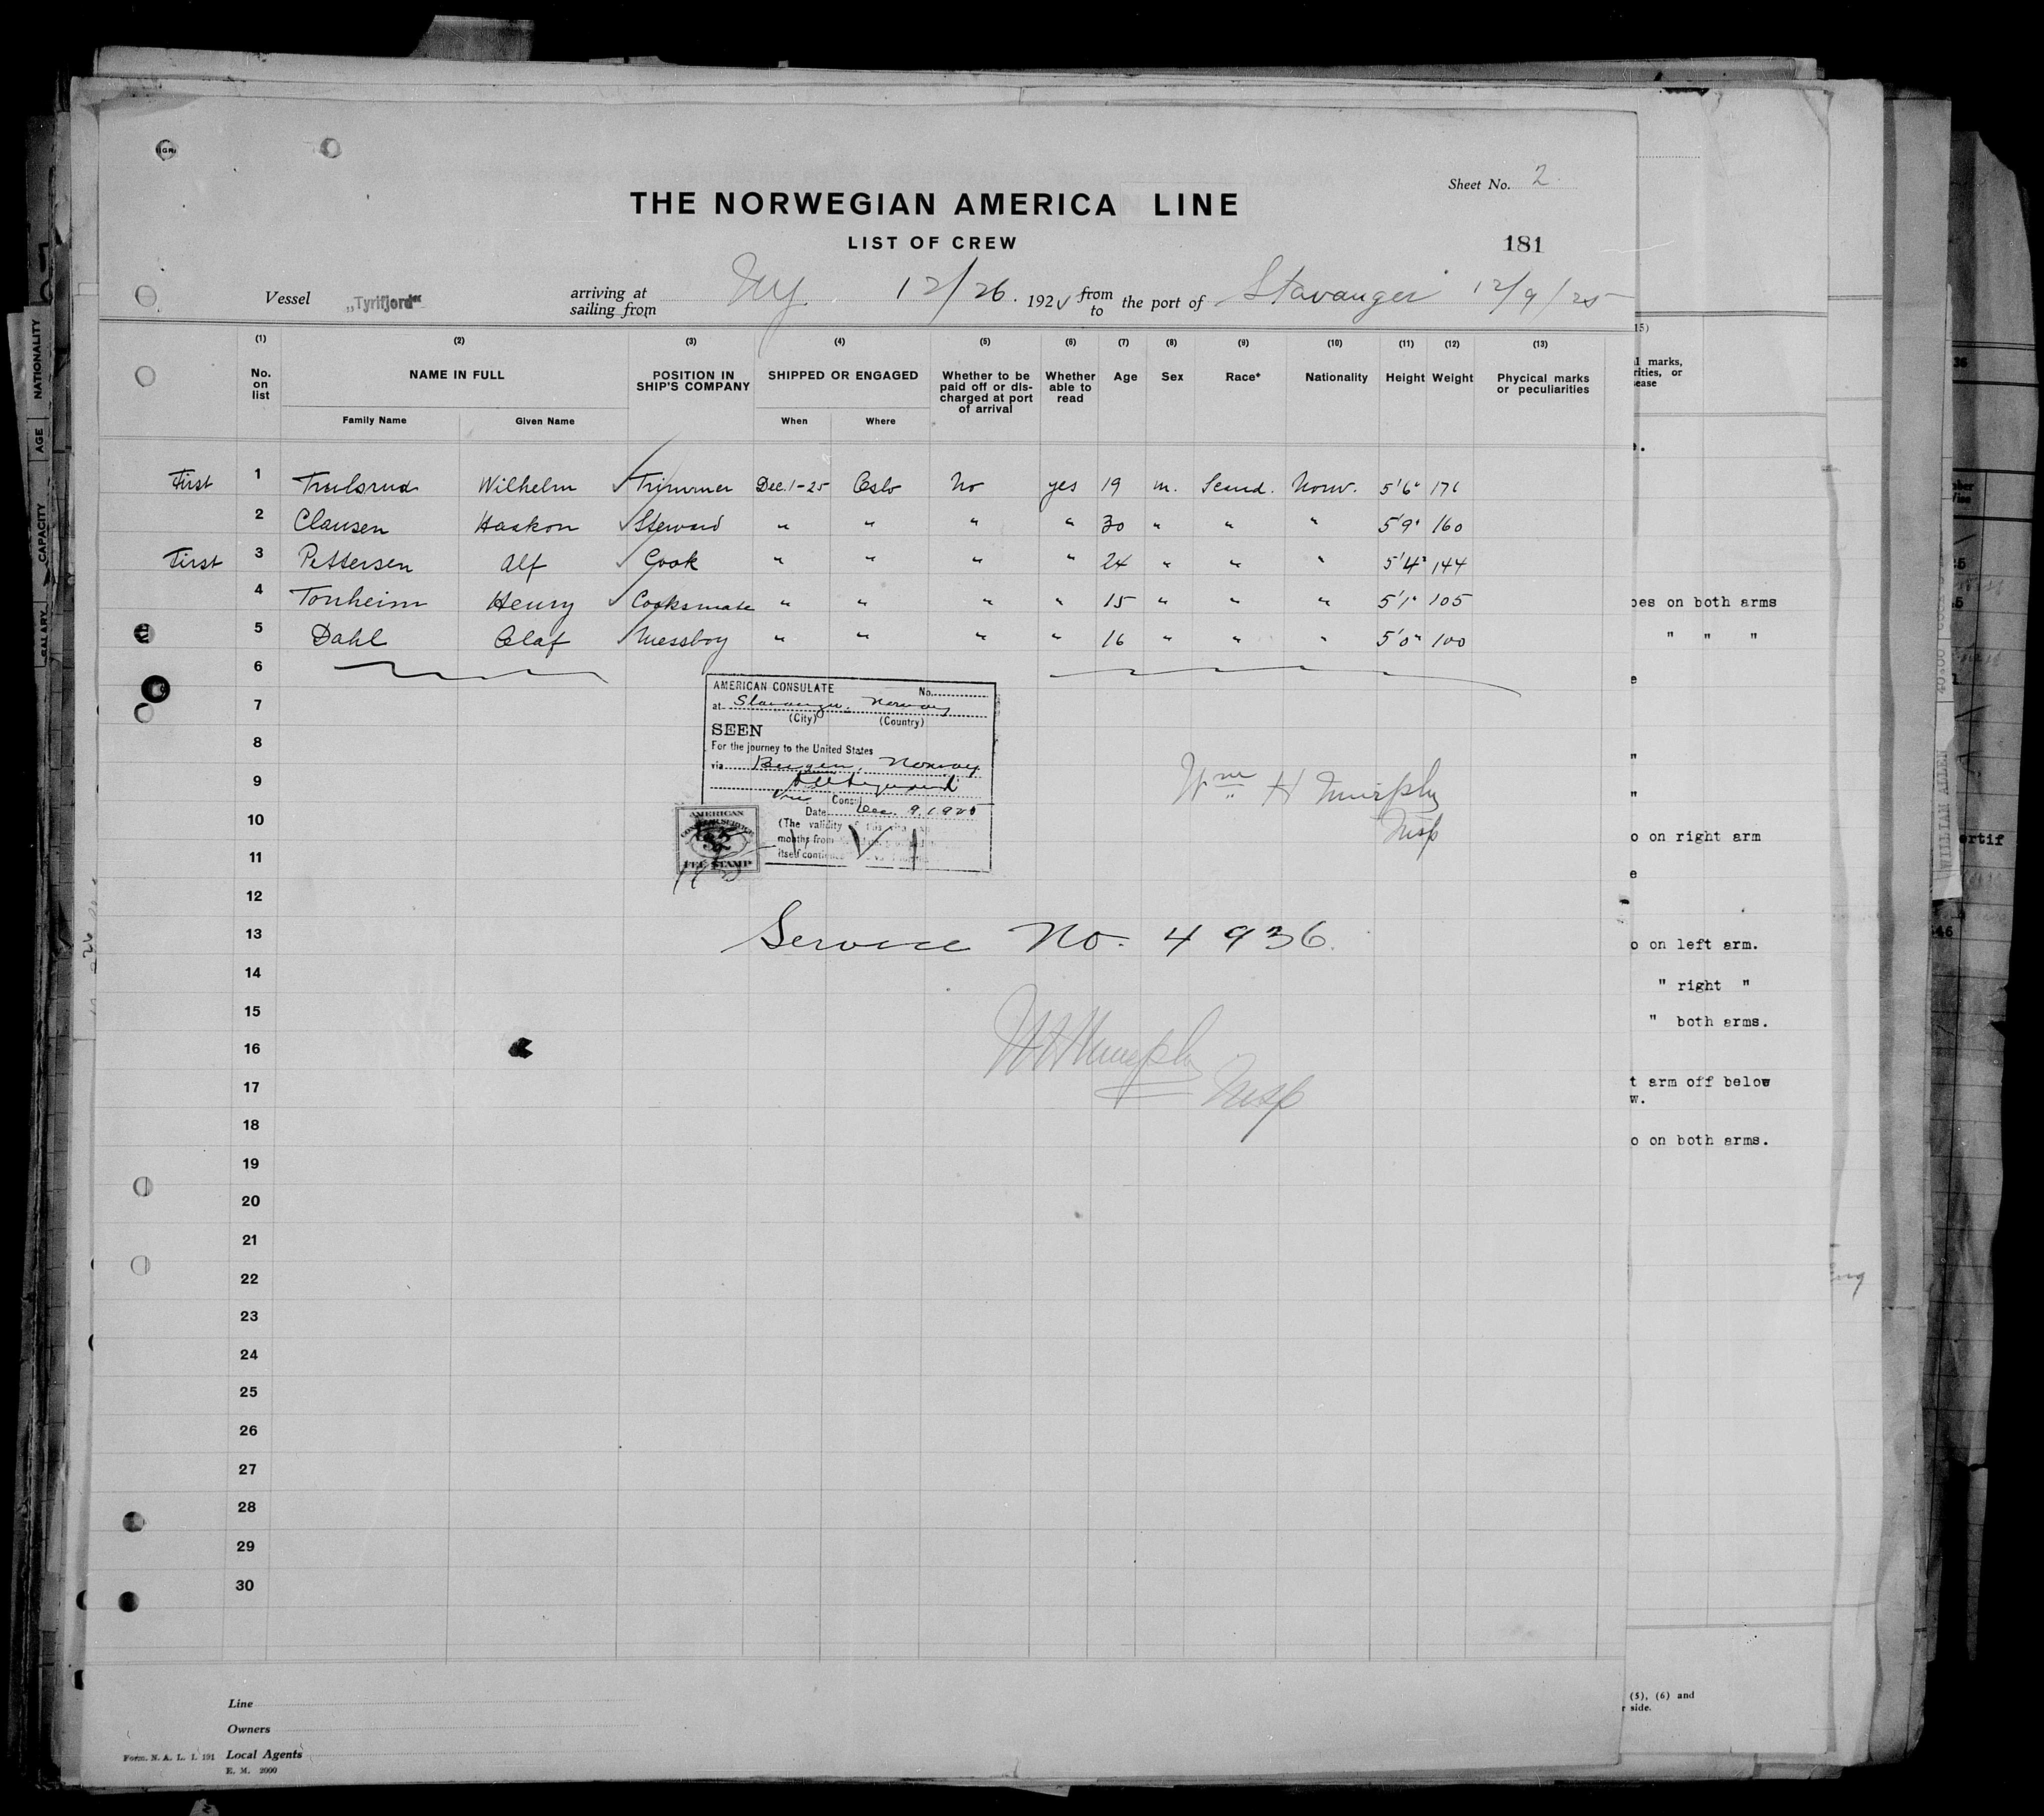 Sheet No. 2.
THE NORWEGIAN AMERICA LINE
LIST OF CREW
181
Vessel „Tyrifjord“ arriving at sailing from NY 12/26. 192 from to the port of Stavanger 12/9/25
(1) (2) (3) (4) (5) (6) (7) (8) (9) (10) (11) (12) (13)
No. on list NAME IN FULL POSITION IN SHIP'S COMPANY SHIPPED OR ENGAGED Whether to be paid off or discharged at port of arrival Whether able to read Age Sex Race* Nationality Height Weight Phycical marks or peculiarities
Family Name Given Name When Where
First 1 Trulsrud Wilhelm Trimmer Dec. 1-25 Oslo No yes 19 m. Scand. Norw. 5'6" 176
2 Clausen Haakon Steward " " " " 30 " " " 5'9" 160
First 3 Pettersen Alf Cook " " " " 24 " " " 5'4" 144
4 Tonheim Henry Cooksmate " " " " 15 " " " 5'1" 105
5 Dahl Olaf Messboy " " " " 16 " " " 5'0" 100
6
7
8
9
10
11
12
13
14
15
16
17
18
19
20
21
22
23
24
25
26
27
28
29
30
AMERICAN CONSULATE No.
at Stavanger, Norway
(City) (Country)
SEEN
For the journey to the United States
via Bergen, Norway
Vice Consul
Date Dec. 9, 1925
(The validity
months from
itself
AMERICAN
FEE STAMP
Wm H Murphy
Insp
Service No. 4936
WH Murphy
Insp
Line
Owners
Local Agents
Form. N. A. L. I. 191
E. M. 2000
NATIONALITY
AGE
CAPACITY
SALARY
15)
marks,
rities, or
sease
oes on both arms
" " "
e
"
"
o on right arm
e
o on left arm.
" right "
" both arms.
t arm off below
w.
o on both arms.
(5), (6) and
r side.
WILLIAM ALLEN
ertif